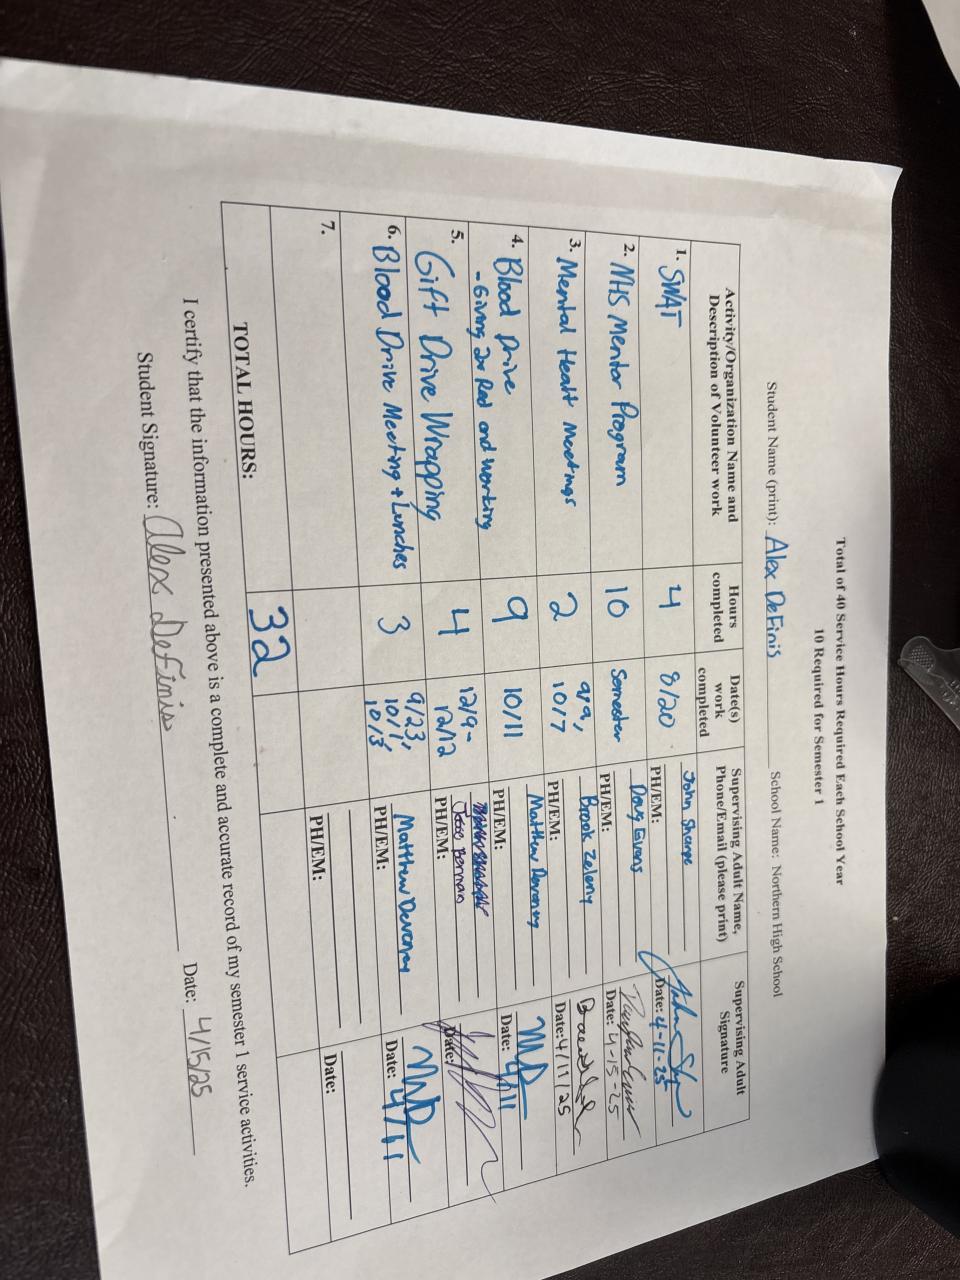 Total of 40 Service Hours Required Each School Year
10 Required for Semester 1
Student Name (print): Alex DeFinis School Name: Northern High School
Activity/Organization Name and Description of Volunteer work
Hours completed
Date(s) work completed
Supervising Adult Name, Phone/Email (please print)
Supervising Adult Signature
1. SWAT 4 8/20 John Sharpe
PH/EM: Date: 4-11-25
2. NHS Mentor Program 10 Semester Doug Evans
PH/EM: Date: 4-15-25
3. Mental Healt Meetings 2 9/9, 10/7 Brook Zeleny
PH/EM: Date: 4/11/25
4. Blood Drive 9 10/11 Matthew Devoney
- Giving 2x Red and working
PH/EM: Date: 4/11
5. Gift Drive Wrapping 4 12/9- 12/12 Jess Berman
PH/EM: Date:
6. Blood Drive Meeting + Lunches 3 9/23, 10/1, 10/3 Matthew Devoney
PH/EM: Date: 4/11
7.
PH/EM: Date:
TOTAL HOURS: 32
I certify that the information presented above is a complete and accurate record of my semester 1 service activities.
Student Signature: Alex DeFinis Date: 4/15/25